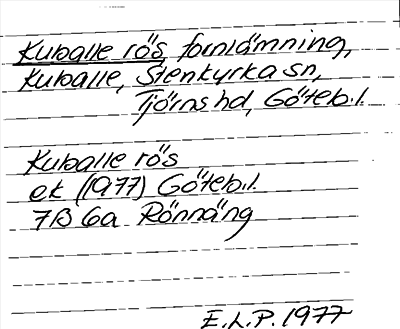 Kuballe rös, fornlämning,
Kuballe, Stenkyrka sn,
Tjörns hd, Göteb.l.
Kuballe rös
ek (1977) Göteb.l.
7B 6a Rönnäng
E.L.P. 1977